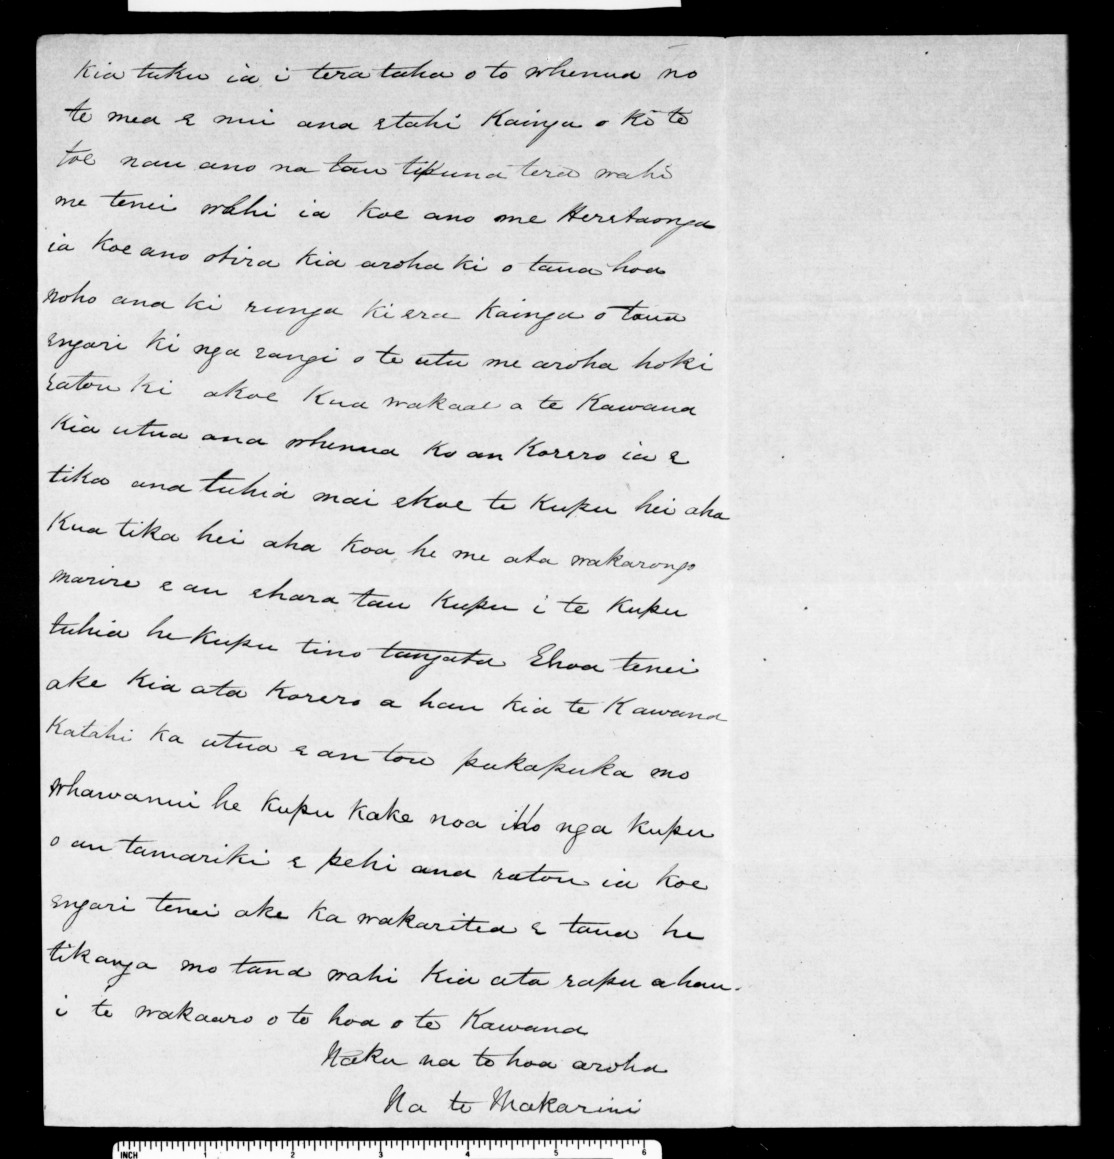 Kia tuku ia i tera taha o to whenua no
te mea e nui ana etahi Kainga o Ko te
toe nau ano na tau tipuna tera wahi
me tenei wahi ia Koe ano me Heretaonga
ia Koe ano otira Kia aroha ki o taua hoa
noho ana ki runga ki era Kainga o taua
engari ki nga rangi o te utu me aroha hoki
ratou ki akoe Kua wakaae a te Kawana
Kia utua ana whenua Ko an Korero ia e
tika ana tuhia mai ekoe te Kupu hei aha
Kua tika hei aha Koa he me ata wakarongo
marire e au ehara tau Kupu i te Kupu
tuhia he Kupu tino tangata Ehoa tenei
ake Kia ata Korero a hau Kia te Kawana
Katahi Ka utua e au tou pukapuka mo
Whawanui he Kupu Kake noa iho nga Kupu
o au tamariki e pehi ana ratou ia Koe
engari tenei ake Ka wakaritea e taua he
tikanga mo taua wahi Kia ata rapu a hau.
i te wakaaro o to hoa o te Kawana
Naku na to hoa aroha
Na te Makarini
INCH 1 2 3 4 5 6